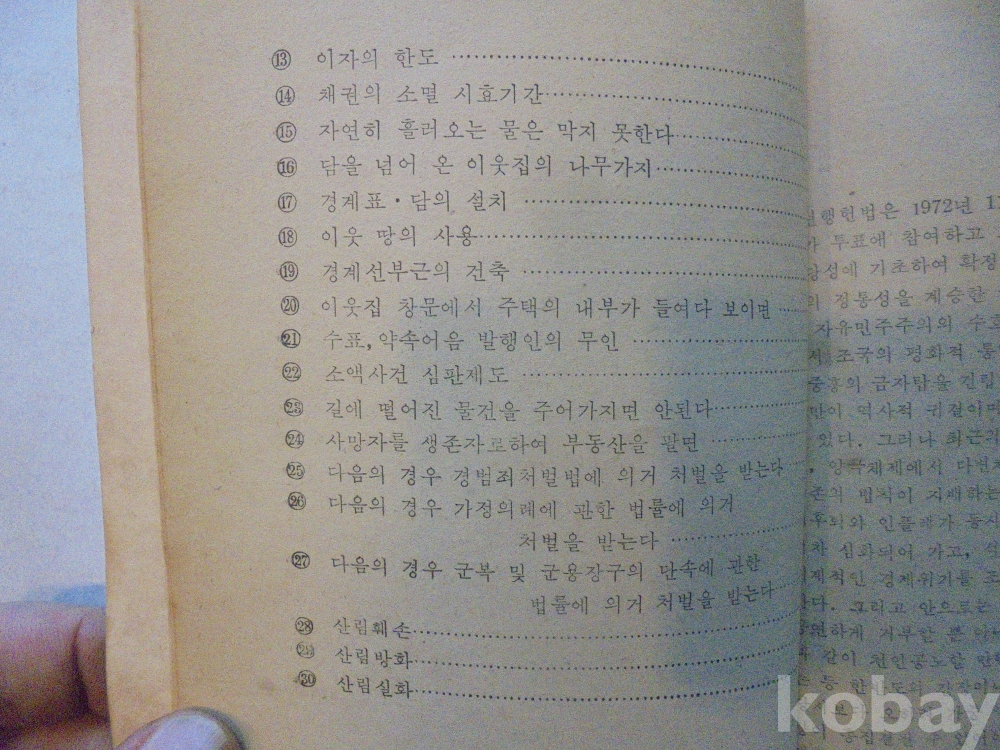 ⑬ 이자의 한도
⑭ 채권의 소멸 시효기간
⑮ 자연히 흘러오는 물은 막지 못한다
⑯ 담을 넘어 온 이웃집의 나무가지
⑰ 경계표・담의 설치
⑱ 이웃 땅의 사용
⑲ 경계선부근의 건축
⑳ 이웃집 창문에서 주택의 내부가 들여다 보이면
㉑ 수표, 약속어음 발행인의 무인
㉒ 소액사건 심판제도
㉓ 길에 떨어진 물건을 주어가지면 안된다
㉔ 사망자를 생존자로하여 부동산을 팔면
㉕ 다음의 경우 경범죄처벌법에 의거 처벌을 받는다
㉖ 다음의 경우 가정의례에 관한 법률에 의거
처벌을 받는다
㉗ 다음의 경우 군복 및 군용장구의 단속에 관한
법률에 의거 처벌을 받는다
㉘ 산림훼손
㉙ 산림방화
㉚ 산림실화
행헌법은 1972년
투표에 참여하고
기초하여 확정
정통성을 계승한
자유민주주의의
조국의 평화적
중흥의 금자탑을 건립
역사적 귀결이며
있다. 그러나 최근의
법칙이 지배하는
심화되어 가고,
경제위기를
그리고 안으로는
거부한 뿐
같이 천인공노할
kobay